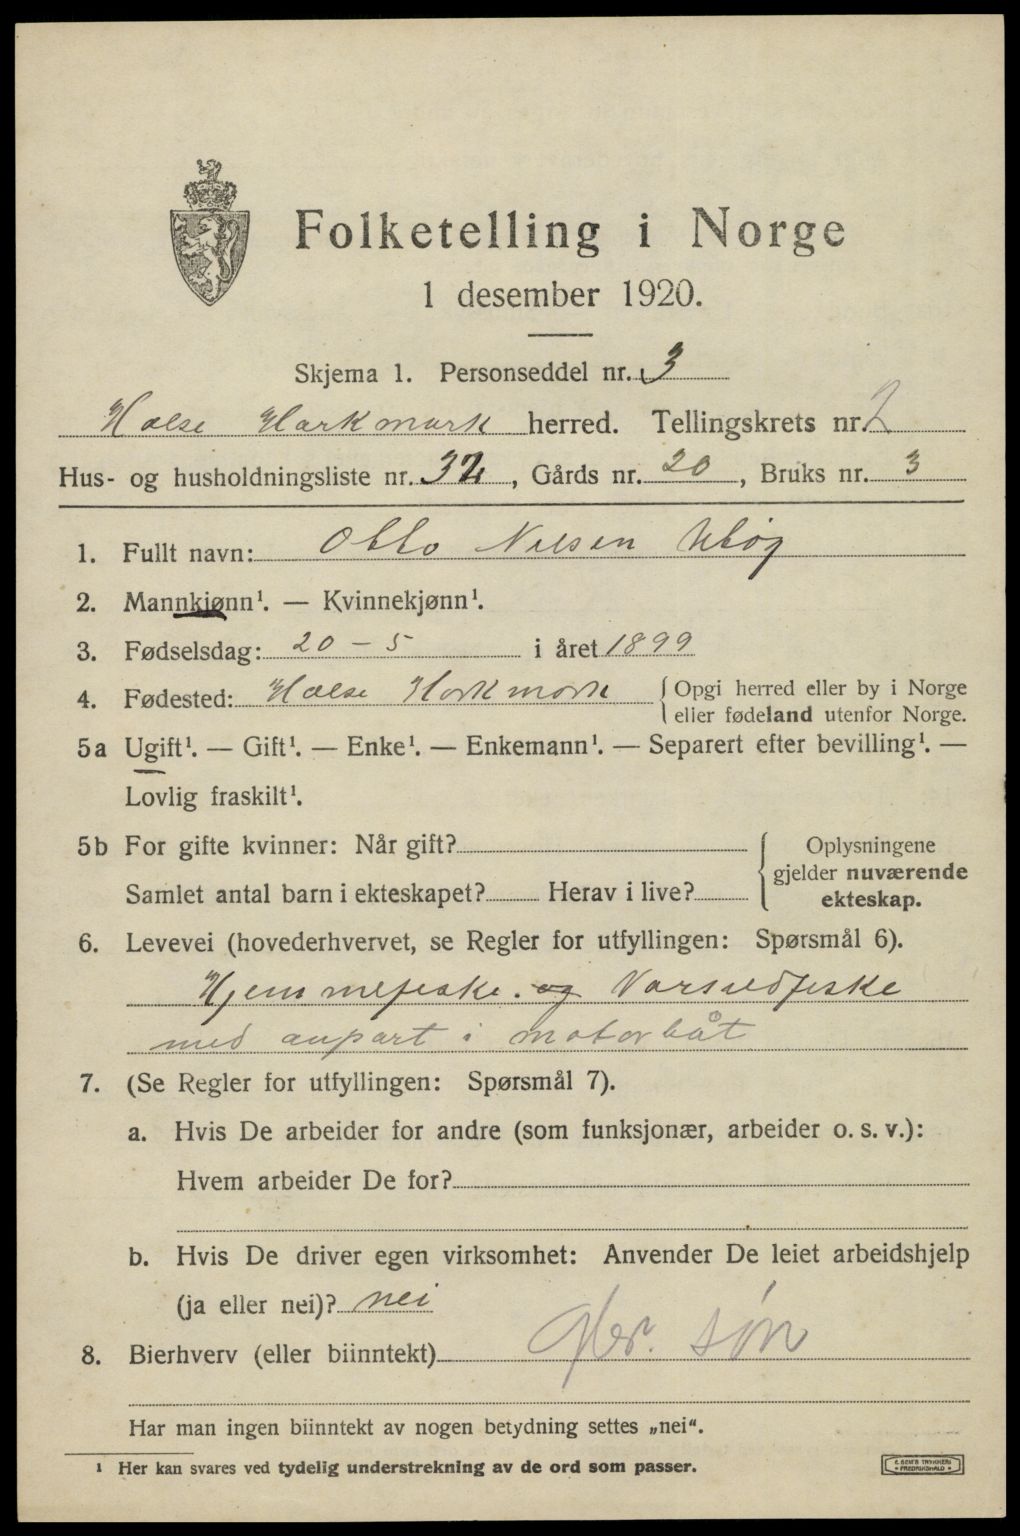 Folketelling i Norge
1 desember 1920.
Skjema 1. Personseddel nr. 3
Halse Harkmark herred. Tellingskrets nr. 2
Hus- og husholdningsliste nr. 32, Gårds nr. 20, Bruks nr. 3
1. Fullt navn: Otto Nilsen Ubøg
2. Mannkjønn¹. — Kvinnekjønn¹.
3. Fødselsdag: 20 - 5 i året 1899
4. Fødested: Halse Harkmark { Opgi herred eller by i Norge
eller fødeland utenfor Norge.
5a Ugift¹. — Gift¹. — Enke¹. — Enkemann¹. — Separert efter bevilling¹. —
Lovlig fraskilt¹.
5b For gifte kvinner: Når gift?
Samlet antal barn i ekteskapet? Herav i live?
Oplysningene
gjelder nuværende
ekteskap.
6. Levevei (hovederhvervet, se Regler for utfyllingen: Spørsmål 6).
Hjemmefiske. og Vorsildfiske
med anpart i motorbåt
7. (Se Regler for utfyllingen: Spørsmål 7).
a. Hvis De arbeider for andre (som funksjonær, arbeider o. s. v.):
Hvem arbeider De for?
b. Hvis De driver egen virksomhet: Anvender De leiet arbeidshjelp
(ja eller nei)? nei
8. Bierhverv (eller biinntekt) søn
Har man ingen biinntekt av nogen betydning settes „nei“.
¹ Her kan svares ved tydelig understrekning av de ord som passer.